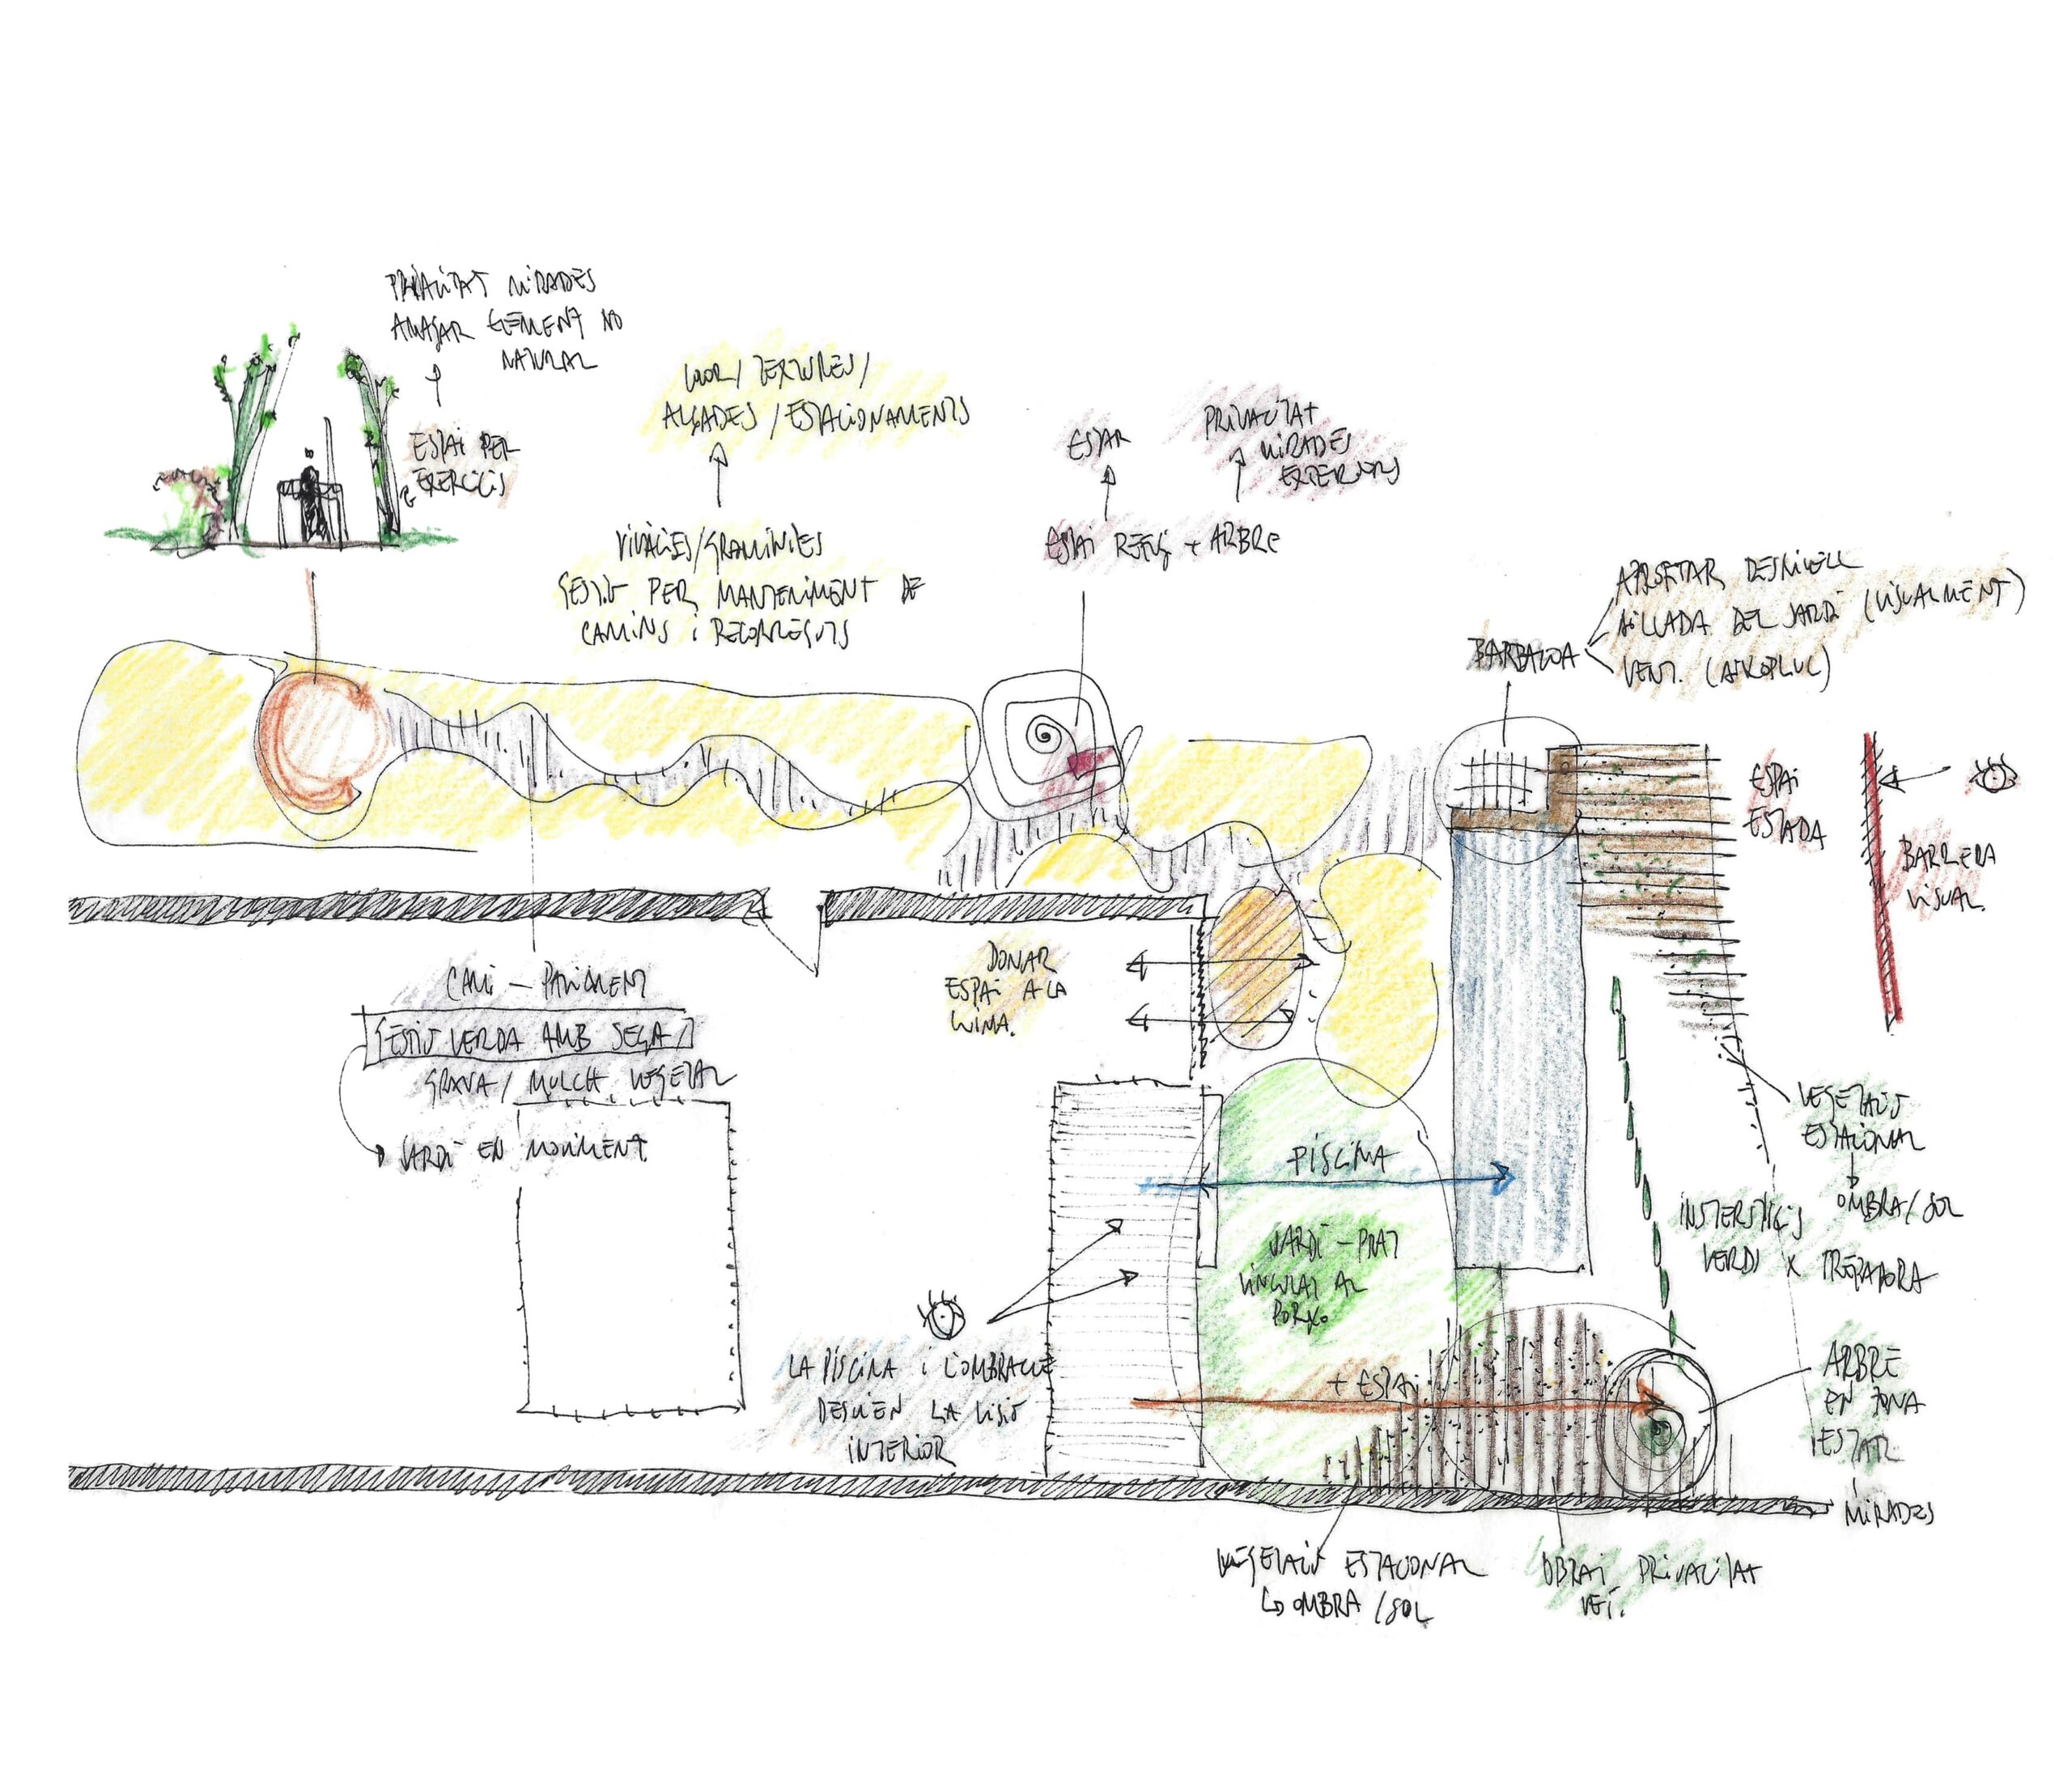 PRIVACITAT MIRADES
AMAGAR ELEMENT NO
NATURAL
ESPAI PER
EXERCICIS
COLOR / TEXTURES /
ALÇADES / ESTACIONAMENTS
VIVÀCIES/GRAMÍNIES
GESTIÓ PER MANTENIMENT DE
CAMINS i RECORREGUTS
ESTAR
PRIVACITAT
MIRADES
EXTERIORS
ESPAI REFUGI + ARBRE
BARBACOA
APROFITAR DESNIVELL
AÏLLADA DEL JARDÍ (VISUALMENT)
VENT.
ESPAI
ESTADA
BARRERA
VISUAL
CAMÍ - PAVIMENT
GESTIÓ VERDA AMB SEGA /
GRAVA / MULCH VEGETAL
JARDÍ EN MOVIMENT
DONAR
ESPAI A LA
CUINA.
PISCINA
JARDÍ - PRAT
VINCULAT AL
PORXO
+ ESPAI
LA PISCINA i L'OMBRACLE
DESVIEN LA VISIÓ
INTERIOR
VEGETACIÓ
ESTACIONAL
OMBRA/SOL
INSTERSTICIS
VERDS X TREPADORA
ARBRE
EN ZONA
ESTAR
MIRADES
VEGETACIÓ ESTACIONAL
OMBRA / SOL
PRIVACITAT
VEÍ.